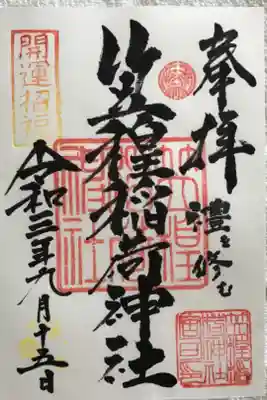 奉拝
禮を修む
笠䅣稲荷神社
令和三年九月十五日
開運招福